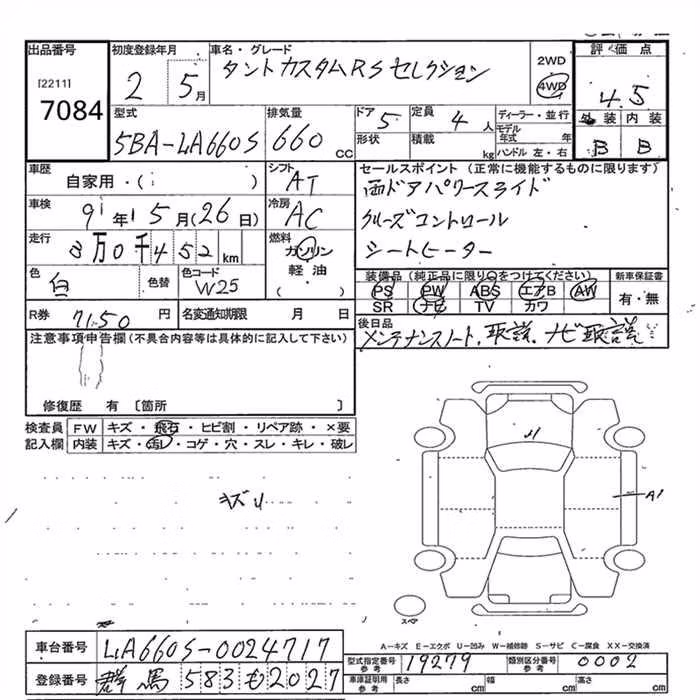 出品番号 初度登録年月 車名・グレード 2WD 評価点
[2211] 7084 2 5月 タントカスタムRSセレクション 4WD 4.5
型式 排気量 ドア 5 定員 4人 ディーラー・並行 外装 内装
5BA-LA660S 660cc 形状 積載 kg モデル年式 年 B B
ハンドル 左・右
車歴 シフト セールスポイント (正常に機能するものに限ります)
自家用・( ) AT 両ドアパワースライド
車検 9年 5月(26日) 冷房 AC クルーズコントロール
走行 3万0千452km 燃料 ガソリン シートヒーター
軽油
( ・ )
色 白 色替 色コード W25 装備品(純正品に限り○をつけてください) 新車保証書
PS PW ABS エアB AW 有・無
SR ナビ TV カワ
R券 7150円 名変通知期限 月 日 後日品
メンテナンスノート、取説、ナビ取説
注意事項申告欄(不具合内容等は具体的に記入して下さい)
修復歴 有 〔箇所 〕
検査員 FW キズ・飛石・ヒビ割・リペア跡・×要
記入欄 内装 キズ・汚レ・コゲ・穴・スレ・キレ・破レ
キズU
A1
スペア
A-キズ E-エクボ U-凹み W-補修跡 S-サビ C-腐食 XX-交換済
車台番号 LA660S-0024717
型式指定番号 参考 19279 類別区分番号 参考 0002
登録番号 群馬 583 も 2027
車庫証明用 参考 長さ cm 幅 cm 高さ cm